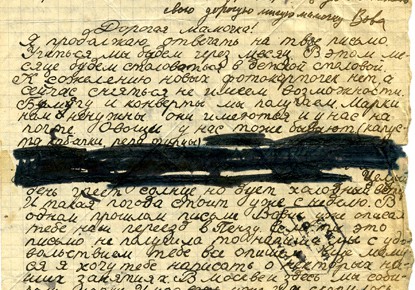 свою дорогую милую мамочку Вова
Дорогая Мамочка!
Я продолжаю отвечать на твое письмо.
Учиться мы будем три месяца. В этом ме-
сяце будем столоваться в детской столовой.
К сожалению новых фотокарточек нет, а
сейчас сняться не имеем возможности.
Бумагу и конверты мы получаем. Марки
нам ненужны они имеются и у нас на
почте Овощи у нас тоже бывают (капус-
та кабачки репа огурцы)
Целый
день греет солнце но дует холодный
И такая погода стоит уже неделю. В
одном прошлом письме Вавик уже описал
тебе наш переезд в Пензу. Если ты это
письмо не получила то напиши мы с удо-
вольствием тебе все опишем. мамоч-
ка я хочу тебе написать о некоторых на-
ших занятиях. В Москве здесь мы